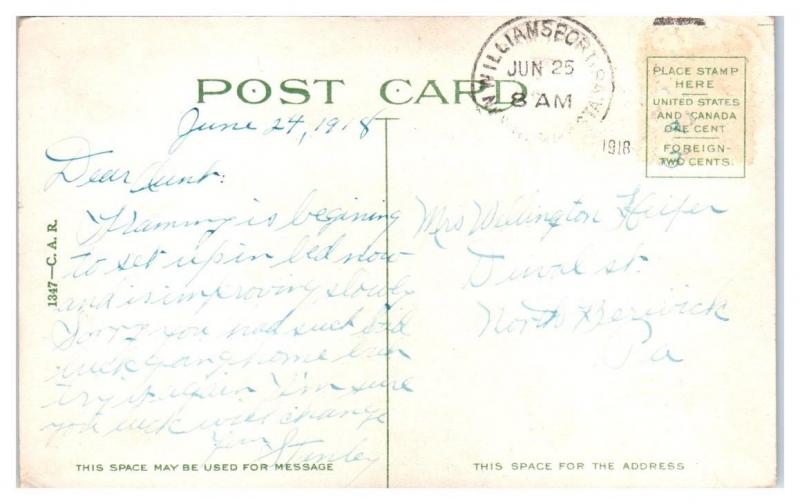 POST CARD
WILLIAMSPORT, PA.
JUN 25
8 AM
1918
PLACE STAMP
HERE
UNITED STATES
AND CANADA
ONE CENT
FOREIGN-
TWO CENTS.
1347—C. A. R.
June 24, 1918
Dear Aunt:
Grammy is begining
to set up in bed now
and is improving slowly
Sorry you had such bad
luck going home but
try it again I'm sure
you luck will change
Stanley
THIS SPACE MAY BE USED FOR MESSAGE
Mrs Wellington
Duval st.
North Berwick
Pa
THIS SPACE FOR THE ADDRESS